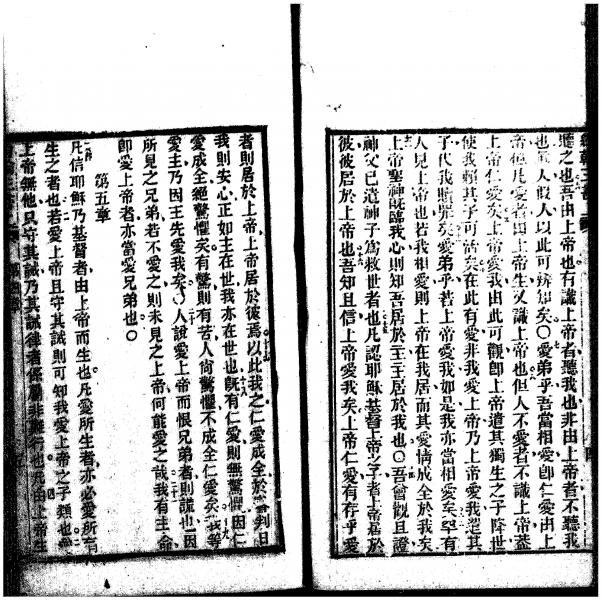 聽之也吾由上帝也有識上帝者聽我也非由上帝者不聽我
也眞人假人以此可辨知矣○愛弟乎吾當相愛卽仁愛由上
帝也凡愛者由上帝生又識上帝也但人不愛者不識上帝蓋
上帝仁愛矣上帝愛我由此可觀卽上帝遣其獨生之子降世
使我賴其子可活矣在此有愛非我愛上帝乃上帝愛我遣其
子代我贖罪矣愛弟乎若上帝愛我如是我亦當相愛矣罕有
人見上帝也若我相愛則上帝在我居而其愛情成全於我矣
上帝聖神旣臨我心則知吾居於主主居於我也○吾曾觀且證
神父已遣神子爲救世者也凡認耶穌基督上帝之子者上帝居於
彼彼居於上帝也吾知且信上帝愛我矣上帝仁愛有存乎愛
者則居於上帝上帝居於彼焉以此我之仁愛成全於審判日
我則安心正如主在世我亦在世也旣有仁愛則無驚懼因仁
愛成全絕驚懼矣有驚則有苦人尙驚懼不成全仁愛矣我等
愛主乃因王先愛我矣人說愛上帝而恨兄弟者則謊也因
所見之兄弟若不愛之則未見之上帝何能愛之哉我有主命
卽愛上帝者亦當愛兄弟也○
第五章
凡信耶穌乃基督者由上帝而生也凡愛所生者亦必愛所有
生之者也若愛上帝且守其誡則可知我愛上帝之子類也
上帝無他只守其誡乃其誡律者係屬非難行也凡由上帝生